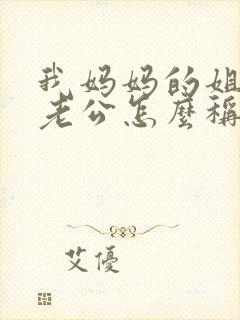 我妈妈的姐
老公怎麼稱
艾優